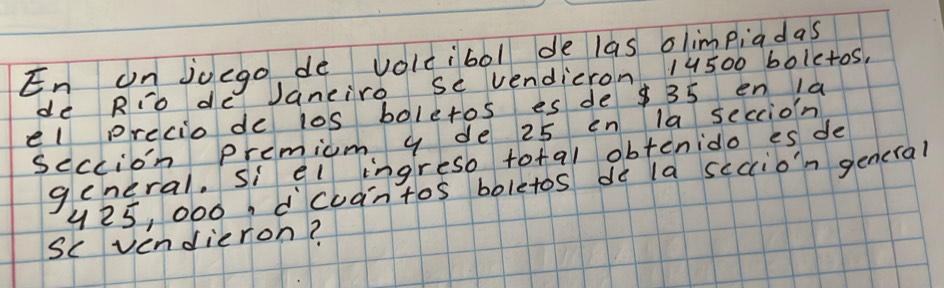 En un juego de voleibol de las olimpiadas
de Río de Janeiro se vendieron 14500 boletos,
el precio de los boletos es de $ 35 en la
sección Premium y de 25 en la sección
general. si el ingreso total obtenido es de
425,000, ¿cuántos boletos de la sección general
se vendieron?